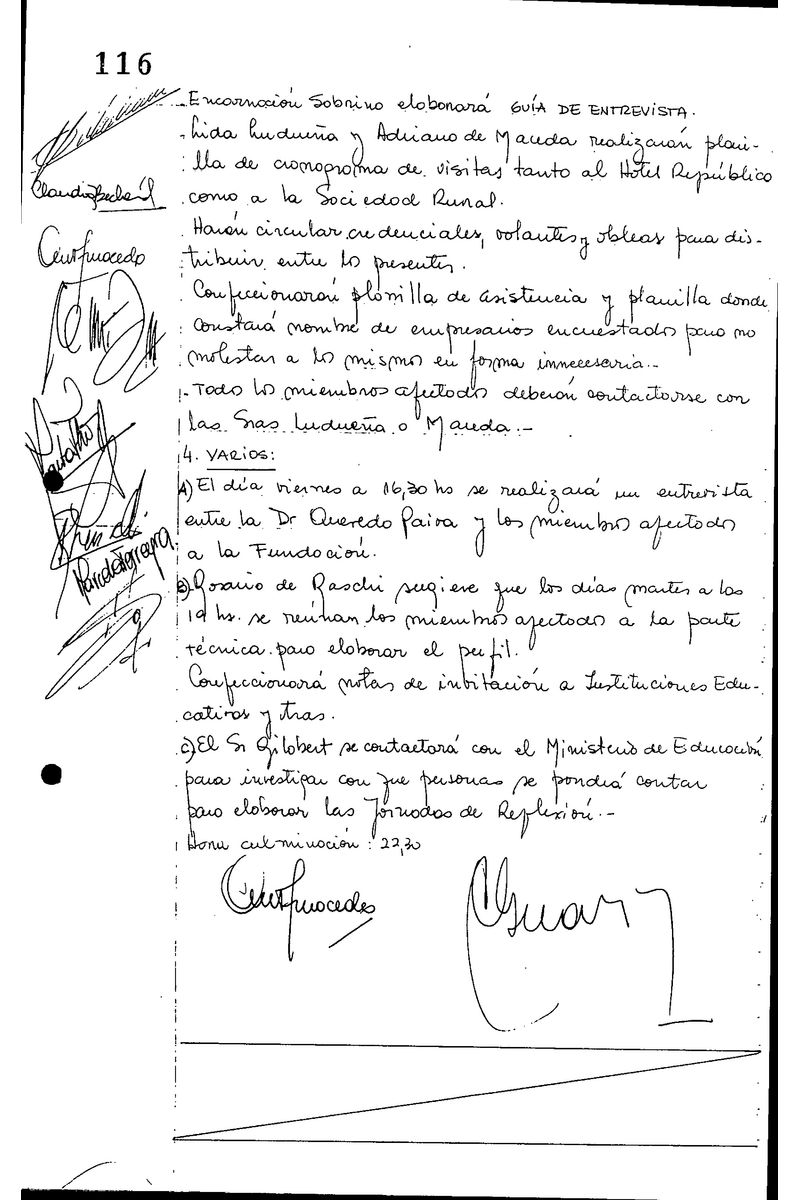 116
Encarnación Sobrino elaborará GUÍA DE ENTREVISTA.
Lida Ludueña y Adriana de Maceda realizarán plani-
lla de cronograma de visitas tanto al Hotel República
como a la Sociedad Rural.
Harán circular credenciales, volantes y obleas para dis-
tribuir entre los presentes.
Confeccionarán planilla de asistencia y planilla donde
constará nombre de empresarios encuestados para no
molestar a los mismos en forma innecesaria.-
- Todo los miembros afectados deberán contactarse con
las Sras Ludueña o Maceda.-
4. VARIOS:
A) El día viernes a 16,30 hs se realizará un entrevista
entre la Dr Quevedo Paiva y los miembros afectados
a la Fundación.
B) Rosario de Raschi sugiere que los días martes a las
19 hs. se reúnan los miembros afectados a la parte
técnica para elaborar el perfil.
Confeccionará notas de invitación a Instituciones Edu-
cativas y tras.
c) El Sr Gilobert se contactará con el Ministerio de Educación
para investigar con que personas se pondrá contar
para elaborar las Jornadas de Reflexión.-
Hora culminación: 22,30